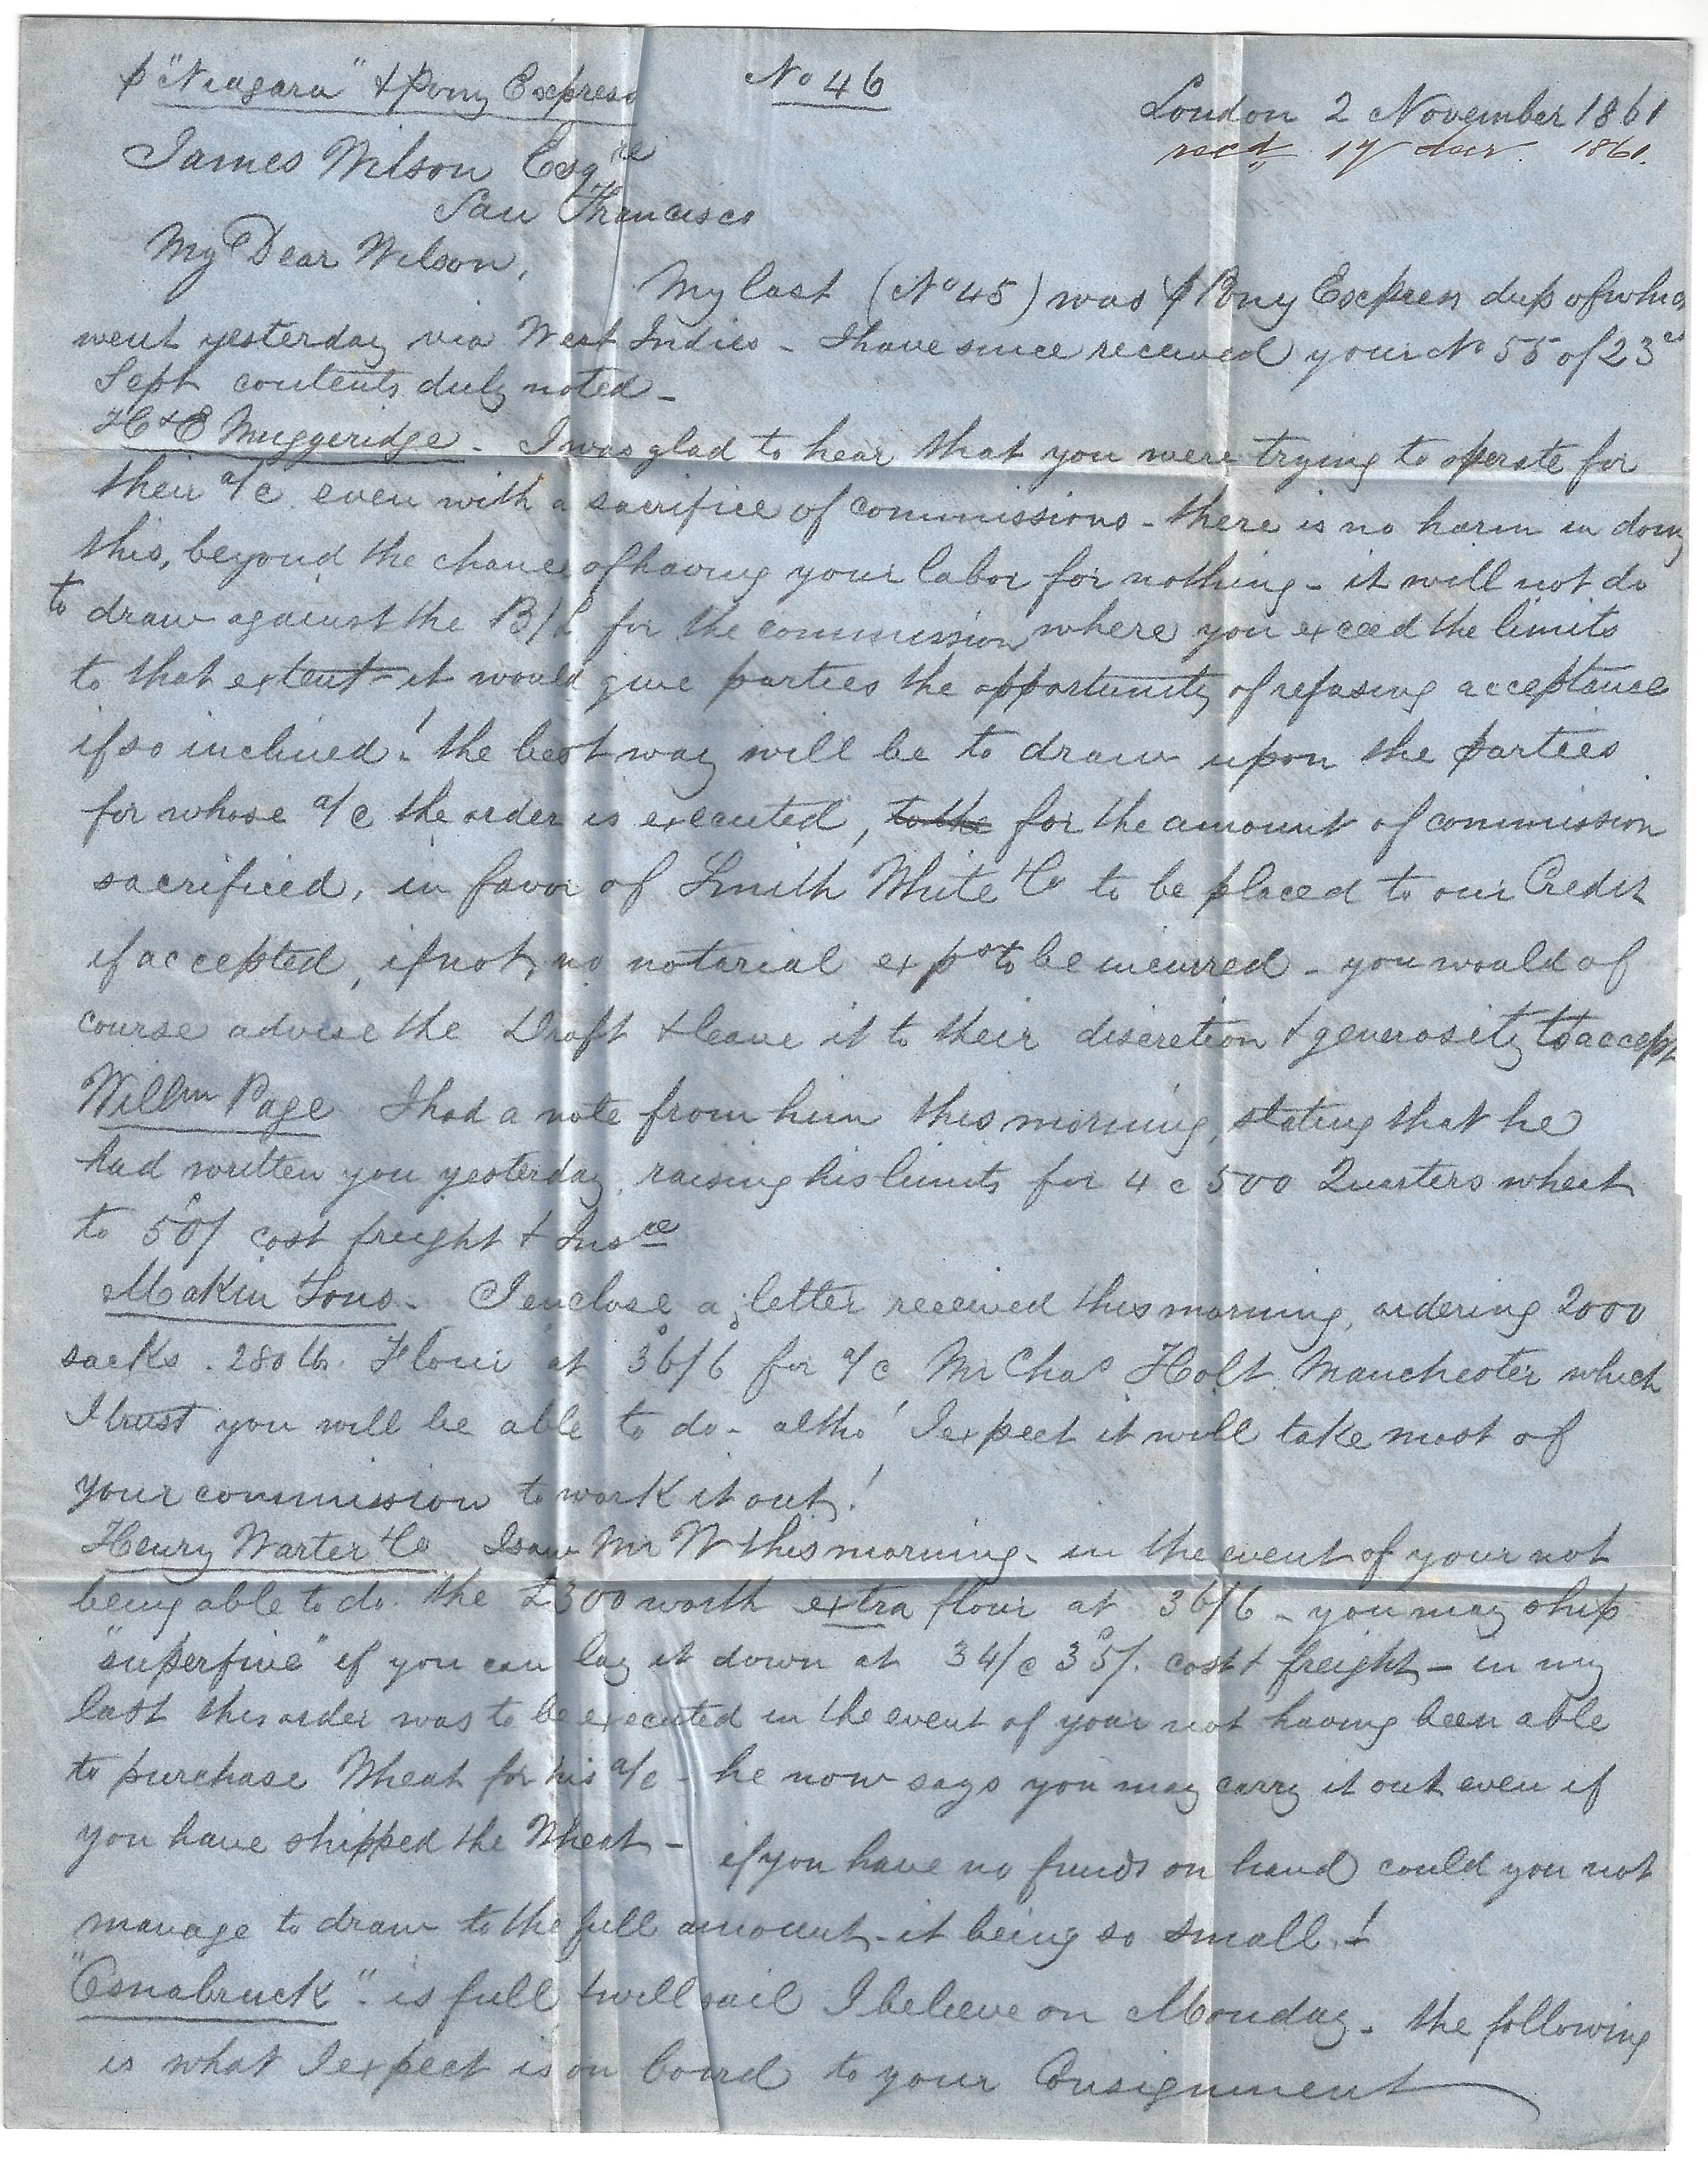 p "Niagara" & Pony Express
No 46
London 2 November 1861
recd 17 decr. 1861.
James Wilson Esqre
San Francisco
My Dear Wilson,
My last (No 45) was p Pony Express dup of which
went yesterday via West Indies - I have since received your No 55 of 23rd
Sept contents duly noted -
H & E Muggeridge - I was glad to hear that you were trying to operate for
their a/c even with a sacrifice of commissions - there is no harm in doing
this, beyond the chance of having your labor for nothing - it will not do
to draw against the B/L for the commission where you exceed the limits
to that extent - it would give parties the opportunity of refusing acceptance
if so inclined! the best way will be to draw upon the parties
for whose a/c the order is executed, to the for the amount of commission
sacrificed, in favor of Smith White & Co to be placed to our Credit
if accepted, if not, no notarial exps to be incurred - you would of
course advise the Draft & leave it to their discretion & generosity to accept
Willm Page I had a note from him this morning, stating that he
had written you yesterday, raising his limits for 4 @ 500 Quarters wheat
to 50/ cost freight & Insce
Makin & Sons - I enclose a letter received this morning, ordering 2000
sacks. 280 lb. Flour at 36/6 for a/c Mr Chas Holt Manchester which
I trust you will be able to do - altho' I expect it will take most of
your commission to work it out!
Henry Warter & Co I saw Mr W this morning - in the event of your not
being able to do the £300 worth extra flour at 36/6 - you may ship
"superfine" if you can lay it down at 34/ @ 35/. cost & freight - in my
last this order was to be executed in the event of your not having been able
to purchase Wheat for his a/c - he now says you may carry it out even if
you have shipped the Wheat - if you have no funds on hand could you not
manage to draw to the full amount - it being so small.!
"Osnabruck". is full & will sail I believe on Monday - the following
is what I expect is on board to your Consignment